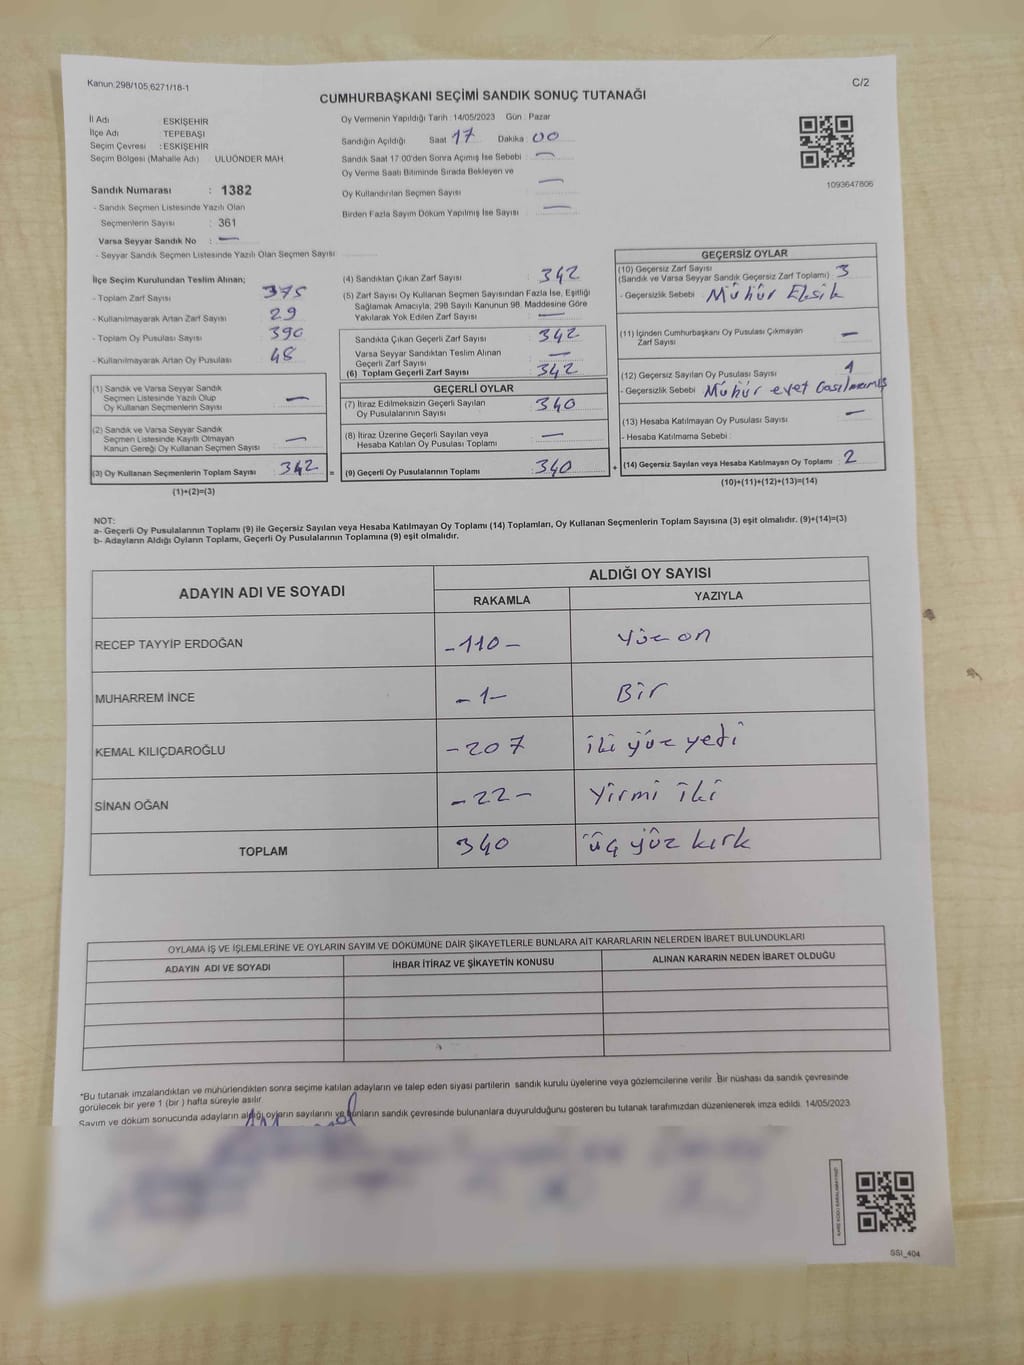 Kanun.298/105,6271/18-1
C/2
CUMHURBAŞKANI SEÇİMİ SANDIK SONUÇ TUTANAĞI
İl Adı : ESKİŞEHİR
İlçe Adı : TEPEBAŞI
Seçim Çevresi : ESKİŞEHİR
Seçim Bölgesi (Mahalle Adı) ULUÖNDER MAH
Sandık Numarası : 1382
- Sandık Seçmen Listesinde Yazılı Olan
Seçmenlerin Sayısı : 361
Varsa Seyyar Sandık No : —
- Seyyar Sandık Seçmen Listesinde Yazılı Olan Seçmen Sayısı :
Oy Vermenin Yapıldığı Tarih : 14/05/2023 Gün : Pazar
Sandığın Açıldığı Saat 17 Dakika : 00
Sandık Saat 17:00'den Sonra Açımış İse Sebebi : —
Oy Verme Saati Bitiminde Sırada Bekleyen ve
Oy Kullandırılan Seçmen Sayısı —
Birden Fazla Sayım Döküm Yapılmış İse Sayısı —
1093647806
İlçe Seçim Kurulundan Teslim Alınan;
- Toplam Zarf Sayısı 375
- Kullanılmayarak Artan Zarf Sayısı : 29
- Toplam Oy Pusulası Sayısı : 390
- Kullanılmayarak Artan Oy Pusulası : 48
(1) Sandık ve Varsa Seyyar Sandık
Seçmen Listesinde Yazılı Olup
Oy Kullanan Seçmenlerin Sayısı —
(2) Sandık ve Varsa Seyyar Sandık
Seçmen Listesinde Kayıtlı Olmayan
Kanun Gereği Oy Kullanan Seçmen Sayısı —
(3) Oy Kullanan Seçmenlerin Toplam Sayısı 342
(1)+(2)=(3)
(4) Sandıktan Çıkan Zarf Sayısı 342
(5) Zarf Sayısı Oy Kullanan Seçmen Sayısından Fazla İse, Eşitliği
Sağlamak Amacıyla; 298 Sayılı Kanunun 98. Maddesine Göre
Yakılarak Yok Edilen Zarf Sayısı : —
Sandıkta Çıkan Geçerli Zarf Sayısı : 342
Varsa Seyyar Sandıktan Teslim Alınan
Geçerli Zarf Sayısı —
(6) Toplam Geçerli Zarf Sayısı : 342
GEÇERLİ OYLAR
(7) İtiraz Edilmeksizin Geçerli Sayılan
Oy Pusulalarının Sayısı : 340
(8) İtiraz Üzerine Geçerli Sayılan veya
Hesaba Katılan Oy Pusulası Toplamı : —
= (9) Geçerli Oy Pusulalarının Toplamı : 340
GEÇERSİZ OYLAR
(10) Geçersiz Zarf Sayısı
(Sandık ve Varsa Seyyar Sandık Geçersiz Zarf Toplamı) : 3
- Geçersizlik Sebebi : Mühür Eksik
(11) İçinden Cumhurbaşkanı Oy Pusulası Çıkmayan
Zarf Sayısı —
(12) Geçersiz Sayılan Oy Pusulası Sayısı 1
- Geçersizlik Sebebi : Mühür evet
(13) Hesaba Katılmayan Oy Pusulası Sayısı —
- Hesaba Katılmama Sebebi :
+ (14) Geçersiz Sayılan veya Hesaba Katılmayan Oy Toplamı : 2
(10)+(11)+(12)+(13)=(14)
NOT:
a- Geçerli Oy Pusulalarının Toplamı (9) ile Geçersiz Sayılan veya Hesaba Katılmayan Oy Toplamı (14) Toplamları, Oy Kullanan Seçmenlerin Toplam Sayısına (3) eşit olmalıdır. (9)+(14)=(3)
b- Adayların Aldığı Oyların Toplamı, Geçerli Oy Pusulalarının Toplamına (9) eşit olmalıdır.
ADAYIN ADI VE SOYADI ALDIĞI OY SAYISI
RAKAMLA YAZIYLA
RECEP TAYYİP ERDOĞAN -110- Yüz on
MUHARREM İNCE -1- Bir
KEMAL KILIÇDAROĞLU -207 İki yüz yedi
SİNAN OĞAN -22- Yirmi iki
TOPLAM 340 üç yüz kırk
OYLAMA İŞ VE İŞLEMLERİNE VE OYLARIN SAYIM VE DÖKÜMÜNE DAİR ŞİKAYETLERLE BUNLARA AİT KARARLARIN NELERDEN İBARET BULUNDUKLARI
ADAYIN ADI VE SOYADI İHBAR İTİRAZ VE ŞİKAYETİN KONUSU ALINAN KARARIN NEDEN İBARET OLDUĞU
*Bu tutanak imzalandıktan ve mühürlendikten sonra seçime katılan adayların ve talep eden siyasi partilerin sandık kurulu üyelerine veya gözlemcilerine verilir. Bir nüshası da sandık çevresinde
görülecek bir yere 1 (bir ) hafta süreyle asılır.
Sayım ve döküm sonucunda adayların aldığı oyların sayılarını ve bunların sandık çevresinde bulunanlara duyurulduğunu gösteren bu tutanak tarafımızdan düzenlenerek imza edildi. 14/05/2023
SSI_404